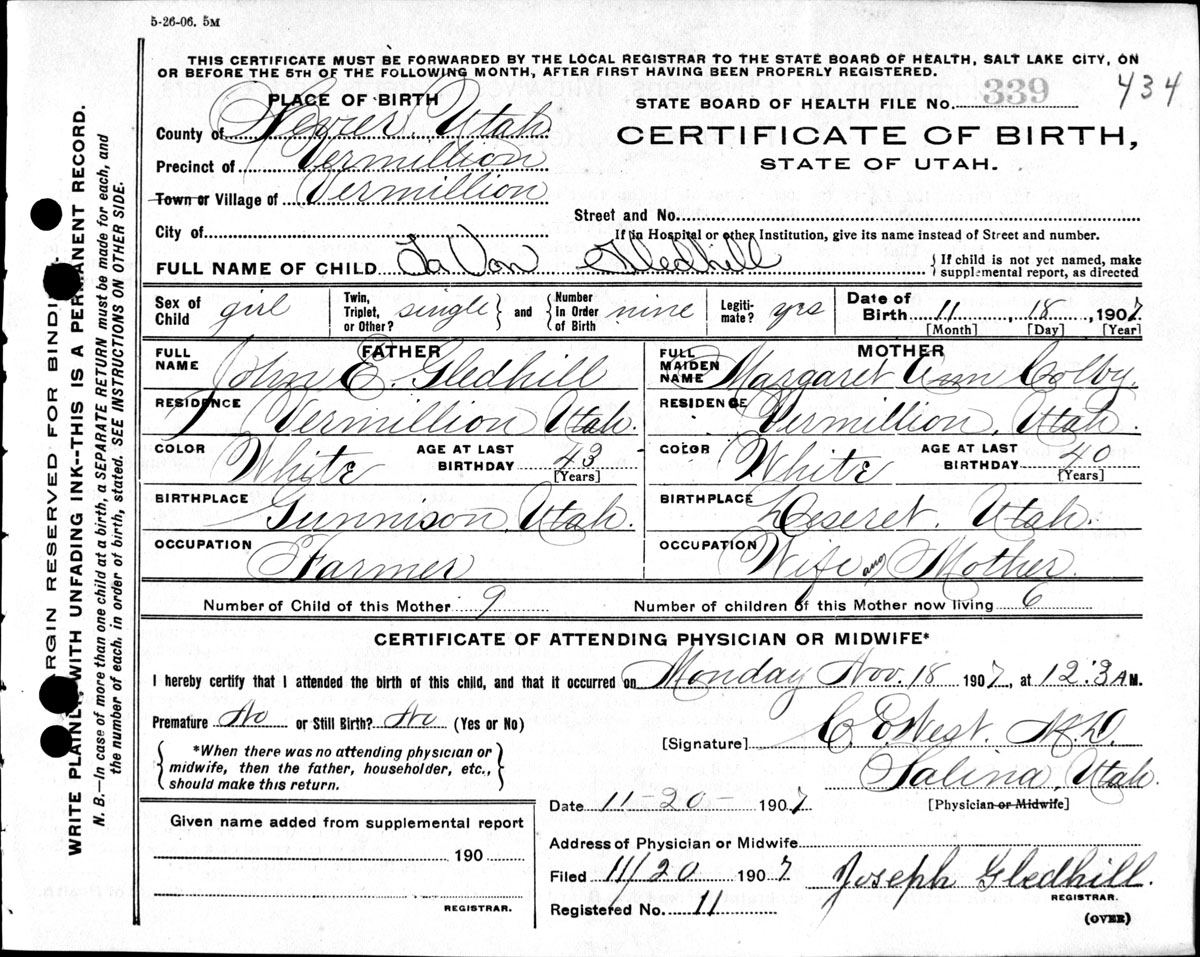 5-26-06. 5M
THIS CERTIFICATE MUST BE FORWARDED BY THE LOCAL REGISTRAR TO THE STATE BOARD OF HEALTH, SALT LAKE CITY, ON
OR BEFORE THE 5TH OF THE FOLLOWING MONTH, AFTER FIRST HAVING BEEN PROPERLY REGISTERED.
434
PLACE OF BIRTH
STATE BOARD OF HEALTH FILE No. 339
County of Sevier, Utah
CERTIFICATE OF BIRTH,
STATE OF UTAH.
Precinct of Vermillion
Town or Village of Vermillion
Street and No.
City of
If in Hospital or other Institution, give its name instead of Street and number.
FULL NAME OF CHILD La Von Gledhill { If child is not yet named, make
supplemental report, as directed
Sex of Child girl Twin, Triplet, or Other? single } and { Number In Order of Birth nine Legiti-mate? yes Date of Birth 11, 18, 1907
[Month] [Day] [Year]
FATHER
MOTHER
FULL NAME John E. Gledhill
FULL MAIDEN NAME Margaret Ann Colby
RESIDENCE Vermillion Utah.
RESIDENCE Vermillion, Utah.
COLOR White AGE AT LAST BIRTHDAY 43 [Years]
COLOR White AGE AT LAST BIRTHDAY 40 [Years]
BIRTHPLACE Gunnison, Utah.
BIRTHPLACE Deseret, Utah.
OCCUPATION Farmer
OCCUPATION Wife and Mother.
Number of Child of this Mother 9 Number of children of this Mother now living 6
CERTIFICATE OF ATTENDING PHYSICIAN OR MIDWIFE*
I hereby certify that I attended the birth of this child, and that it occurred on Monday Nov. 18 1907, at 12:3 A M.
Premature No or Still Birth? No (Yes or No)
{ *When there was no attending physician or
midwife, then the father, householder, etc.,
should make this return. }
[Signature] C. E. West. M.D.
Salina, Utah.
[Physician or Midwife]
Date 11-20- 1907
Given name added from supplemental report
190
REGISTRAR.
Address of Physician or Midwife
Filed 11/20 1907 Joseph Gledhill.
REGISTRAR.
Registered No. 11
(OVER)
MARGIN RESERVED FOR BINDING
WRITE PLAINLY WITH UNFADING INK--THIS IS A PERMANENT RECORD.
N. B.—In case of more than one child at a birth, a SEPARATE RETURN must be made for each, and
the number of each, in order of birth, stated. SEE INSTRUCTIONS ON OTHER SIDE.